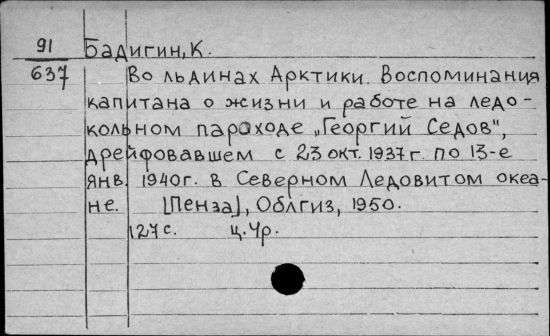 91 Бадигин, К.
637 Во льдинах Арктики. Воспоминания
капитана о жизни и работе на ледо-
кольном пароходе „Георгий Седов",
дрейфовавшем с 23 окт. 1937 г. по 13-е
янв. 1940 г. в Северном Ледовитом океа-
не. [Пенза], Облгиз, 1950.
127 с. ц. 4р.